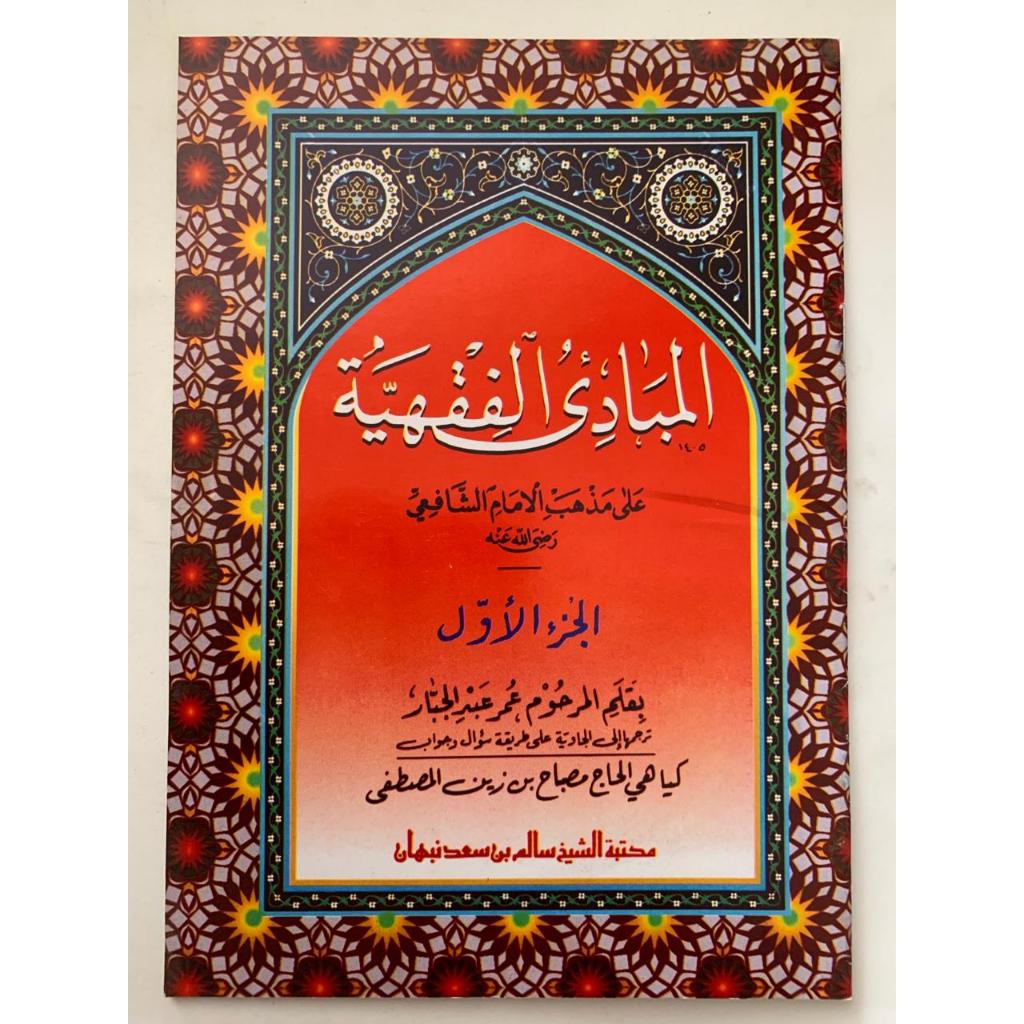 المَبَادِئُ الفِقْهِيَّة
١٤٠٥
عَلَى مَذْهَبِ الإمَامِ الشَّافِعِيِّ
رَضِيَ اللّٰه عَنْه
الجُزْءُ الأَوَّل
بِقَلَمِ المَرحُوْم عُمَر عَبْدِ الجَبَّار
ترجمها إلى الجاوية على طريقة سؤال وجواب
كياهي الحاج مصباح بن زين المصطفى
مكتبة الشيخ سالم بن سعد نبهان